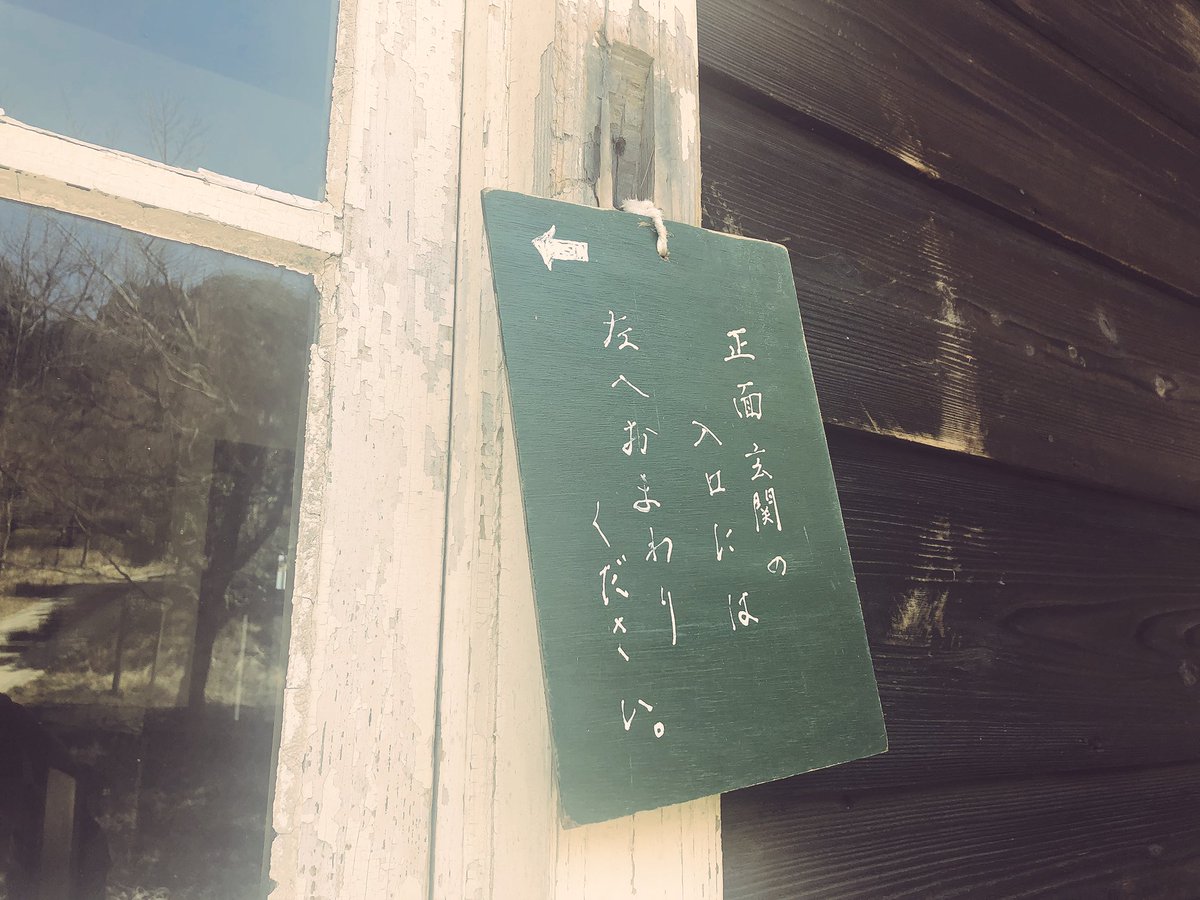 正面玄関の
入口には
左へおまわり
ください。